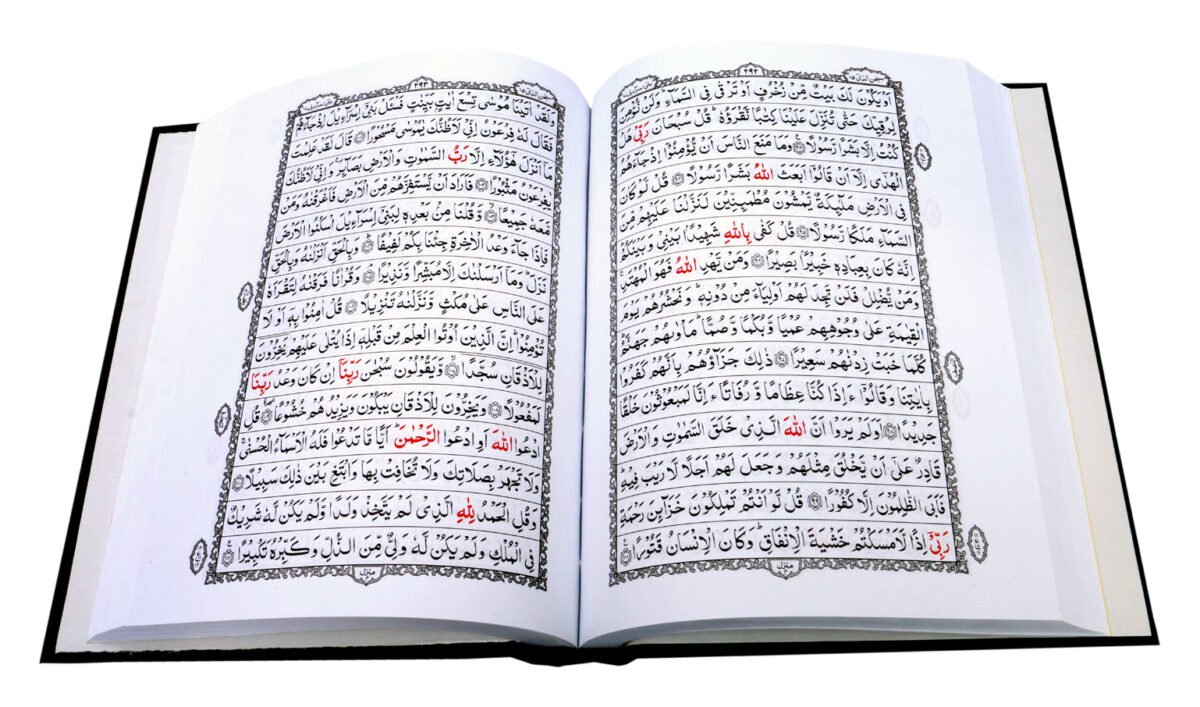 سبحن الذی ۱۵
۲۹۲
اَوْ يَكُوْنَ لَكَ بَيْتٌ مِّنْ زُخْرُفٍ اَوْ تَرْقٰى فِى السَّمَآءِ ؕ وَلَنْ نُّؤْمِنَ
لِرُقِيِّكَ حَتّٰى تُنَزِّلَ عَلَيْنَا كِتٰبًا نَّقْرَؤُهٗ ؕ قُلْ سُبْحَانَ رَبِّىْ هَلْ
كُنْتُ اِلَّا بَشَرًا رَّسُوْلًا ۝ وَمَا مَنَعَ النَّاسَ اَنْ يُّؤْمِنُوْٓا اِذْ جَآءَهُمُ
الْهُدٰٓى اِلَّآ اَنْ قَالُوْٓا اَبَعَثَ اللّٰهُ بَشَرًا رَّسُوْلًا ۝ قُلْ لَّوْ كَانَ
فِى الْاَرْضِ مَلٰٓئِكَةٌ يَّمْشُوْنَ مُطْمَئِنِّيْنَ لَنَزَّلْنَا عَلَيْهِمْ مِّنَ
السَّمَآءِ مَلَكًا رَّسُوْلًا ۝ قُلْ كَفٰى بِاللّٰهِ شَهِيْدًۢا بَيْنِىْ وَبَيْنَكُمْ ؕ
اِنَّهٗ كَانَ بِعِبَادِهٖ خَبِيْرًۢا بَصِيْرًا ۝ وَمَنْ يَّهْدِ اللّٰهُ فَهُوَ الْمُهْتَدِ ۚ
وَمَنْ يُّضْلِلْ فَلَنْ تَجِدَ لَهُمْ اَوْلِيَآءَ مِنْ دُوْنِهٖ ؕ وَنَحْشُرُهُمْ يَوْمَ
الْقِيٰمَةِ عَلٰى وُجُوْهِهِمْ عُمْيًا وَّبُكْمًا وَّصُمًّا ؕ مَاْوٰىهُمْ جَهَنَّمُ ؕ
كُلَّمَا خَبَتْ زِدْنٰهُمْ سَعِيْرًا ۝ ذٰلِكَ جَزَآؤُهُمْ بِاَنَّهُمْ كَفَرُوْا
بِاٰيٰتِنَا وَقَالُوْٓا ءَاِذَا كُنَّا عِظَامًا وَّرُفَاتًا ءَاِنَّا لَمَبْعُوْثُوْنَ خَلْقًا
جَدِيْدًا ۝ اَوَلَمْ يَرَوْا اَنَّ اللّٰهَ الَّذِىْ خَلَقَ السَّمٰوٰتِ وَالْاَرْضَ
قَادِرٌ عَلٰٓى اَنْ يَّخْلُقَ مِثْلَهُمْ وَجَعَلَ لَهُمْ اَجَلًا لَّا رَيْبَ فِيْهِ ؕ
فَاَبَى الظّٰلِمُوْنَ اِلَّا كُفُوْرًا ۝ قُلْ لَّوْ اَنْتُمْ تَمْلِكُوْنَ خَزَآئِنَ رَحْمَةِ
رَبِّىْٓ اِذًا لَّاَمْسَكْتُمْ خَشْيَةَ الْاِنْفَاقِ ؕ وَكَانَ الْاِنْسَانُ قَتُوْرًا ۝
منزل
۲۹۳
وَلَقَدْ اٰتَيْنَا مُوْسٰى تِسْعَ اٰيٰتٍۢ بَيِّنٰتٍ فَسْـَٔلْ بَنِىْٓ اِسْرَآءِيْلَ اِذْ جَآءَهُمْ
فَقَالَ لَهٗ فِرْعَوْنُ اِنِّىْ لَاَظُنُّكَ يٰمُوْسٰى مَسْحُوْرًا ۝ قَالَ لَقَدْ عَلِمْتَ
مَآ اَنْزَلَ هٰٓؤُلَآءِ اِلَّا رَبُّ السَّمٰوٰتِ وَالْاَرْضِ بَصَآئِرَ ۚ وَاِنِّىْ لَاَظُنُّكَ
يٰفِرْعَوْنُ مَثْبُوْرًا ۝ فَاَرَادَ اَنْ يَّسْتَفِزَّهُمْ مِّنَ الْاَرْضِ فَاَغْرَقْنٰهُ وَمَنْ
مَّعَهٗ جَمِيْعًا ۝ وَّقُلْنَا مِنْۢ بَعْدِهٖ لِبَنِىْٓ اِسْرَآءِيْلَ اسْكُنُوا الْاَرْضَ
فَاِذَا جَآءَ وَعْدُ الْاٰخِرَةِ جِئْنَا بِكُمْ لَفِيْفًا ۝ وَبِالْحَقِّ اَنْزَلْنٰهُ وَبِالْحَقِّ
نَزَلَ ؕ وَمَآ اَرْسَلْنٰكَ اِلَّا مُبَشِّرًا وَّنَذِيْرًا ۝ وَقُرْاٰنًا فَرَقْنٰهُ لِتَقْرَاَهٗ
عَلَى النَّاسِ عَلٰى مُكْثٍ وَّنَزَّلْنٰهُ تَنْزِيْلًا ۝ قُلْ اٰمِنُوْا بِهٖٓ اَوْ لَا
تُؤْمِنُوْا ؕ اِنَّ الَّذِيْنَ اُوْتُوا الْعِلْمَ مِنْ قَبْلِهٖٓ اِذَا يُتْلٰى عَلَيْهِمْ يَخِرُّوْنَ
لِلْاَذْقَانِ سُجَّدًا ۝ وَّيَقُوْلُوْنَ سُبْحٰنَ رَبِّنَآ اِنْ كَانَ وَعْدُ رَبِّنَا
لَمَفْعُوْلًا ۝ وَيَخِرُّوْنَ لِلْاَذْقَانِ يَبْكُوْنَ وَيَزِيْدُهُمْ خُشُوْعًا ۝ قُلِ
ادْعُوا اللّٰهَ اَوِ ادْعُوا الرَّحْمٰنَ ؕ اَيًّا مَّا تَدْعُوْا فَلَهُ الْاَسْمَآءُ الْحُسْنٰى ۚ
وَلَا تَجْهَرْ بِصَلَاتِكَ وَلَا تُخَافِتْ بِهَا وَابْتَغِ بَيْنَ ذٰلِكَ سَبِيْلًا ۝
وَقُلِ الْحَمْدُ لِلّٰهِ الَّذِىْ لَمْ يَتَّخِذْ وَلَدًا وَّلَمْ يَكُنْ لَّهٗ شَرِيْكٌ
فِى الْمُلْكِ وَلَمْ يَكُنْ لَّهٗ وَلِىٌّ مِّنَ الذُّلِّ وَكَبِّرْهُ تَكْبِيْرًا ۝
منزل